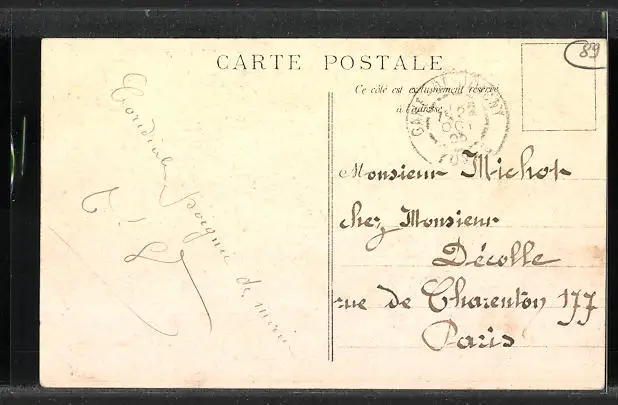 CARTE POSTALE
89
Ce côté est exclusivement réservé
à l'adresse
GARE
Cordiale poignée de main
Monsieur Michot
chez Monsieur
Décolle
rue de Charenton 177
Paris